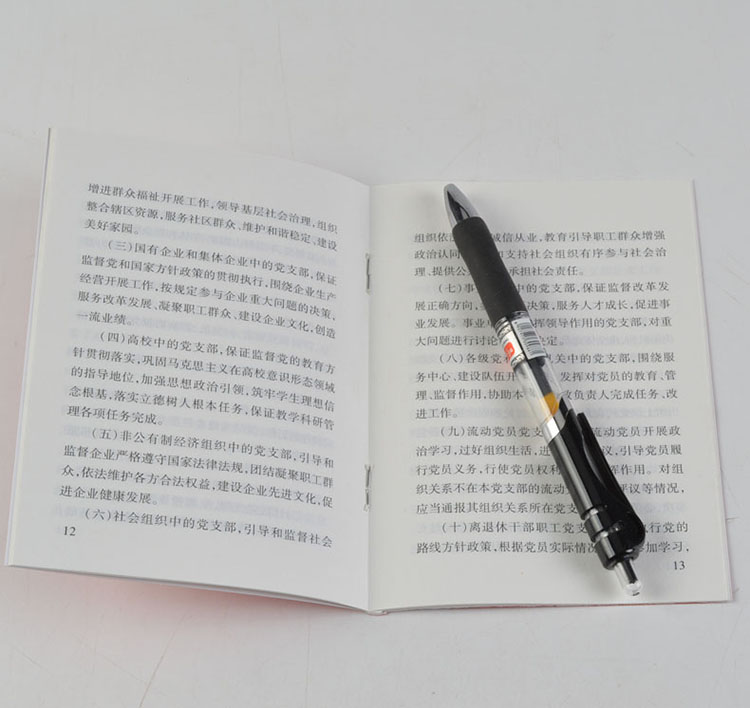 增进群众福祉开展工作，领导基层社会治理，组织
整合辖区资源，服务社区群众、维护和谐稳定、建设
美好家园。
（三）国有企业和集体企业中的党支部，保证
监督党和国家方针政策的贯彻执行，围绕企业生产
经营开展工作，按规定参与企业重大问题的决策，
服务改革发展、凝聚职工群众、建设企业文化，创造
一流业绩。
（四）高校中的党支部，保证监督党的教育方
针贯彻落实，巩固马克思主义在高校意识形态领域
的指导地位，加强思想政治引领，筑牢学生理想信
念根基，落实立德树人根本任务，保证教学科研管
理各项任务完成。
（五）非公有制经济组织中的党支部，引导和
监督企业严格遵守国家法律法规，团结凝聚职工群
众，依法维护各方合法权益，建设企业先进文化，促
进企业健康发展。
（六）社会组织中的党支部，引导和监督社会
12
组织依 诚信从业，教育引导职工群众增强
政治认同 和支持社会组织有序参与社会治
理、提供公 承担社会责任。
（七）事 中的党支部，保证监督改革发
展正确方向， 决策，服务人才成长，促进事
业发展。事业 挥领导作用的党支部，对重
大问题进行讨论 定。
（八）各级党 关中的党支部，围绕服
务中心、建设队伍开 发挥对党员的教育、管
理、监督作用，协助本 负责人完成任务、改
进工作。
（九）流动党员党支 流动党员开展政
治学习，过好组织生活，进 议，引导党员履
行党员义务，行使党员权利 挥作用。对组
织关系不在本党支部的流动 评议等情况，
应当通报其组织关系所在党支
（十）离退休干部职工党支 执行党的
路线方针政策，根据党员实际情 加学习，
13